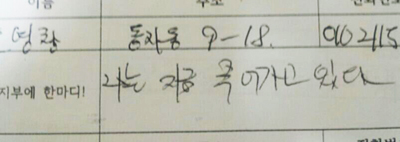 이름 주소
영함 동자동 9-18. 902115
지부에 한마디! 나는 지금 죽어가고 있다